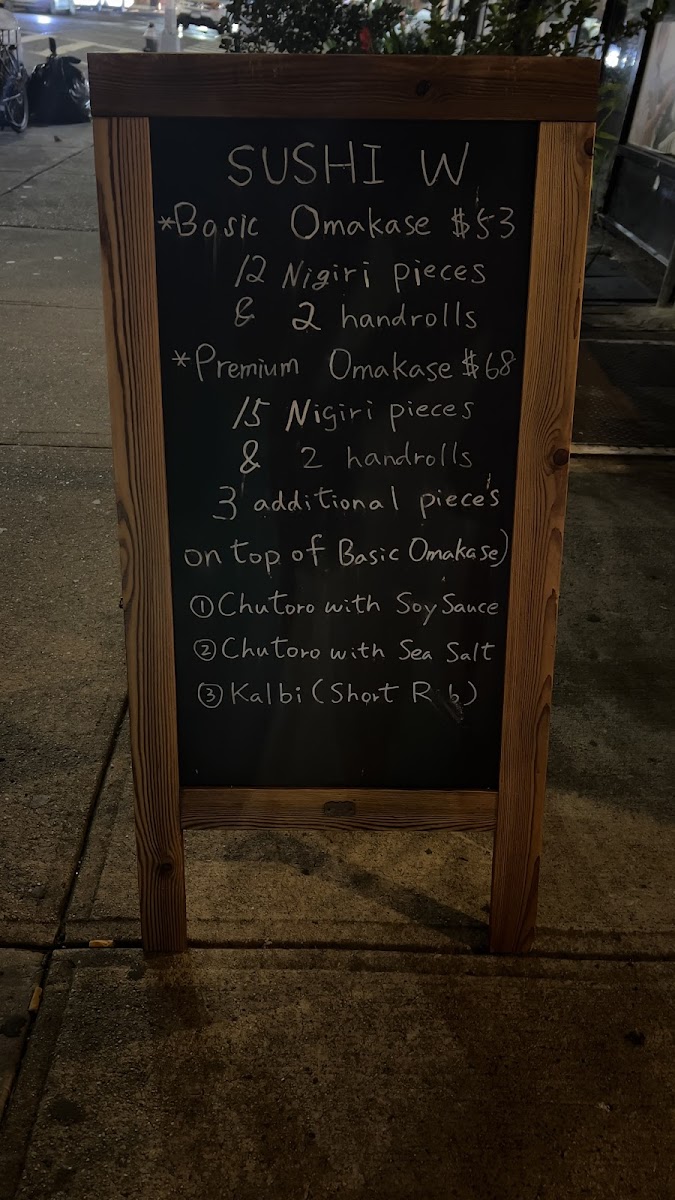 SUSHI W
*Basic Omakase $53
12 Nigiri pieces
& 2 handrolls
*Premium Omakase $68
15 Nigiri pieces
& 2 handrolls
3 additional piece's
on top of Basic Omakase)
①Chutoro with Soy Sauce
②Chutoro with Sea Salt
③Kalbi (Short R b)